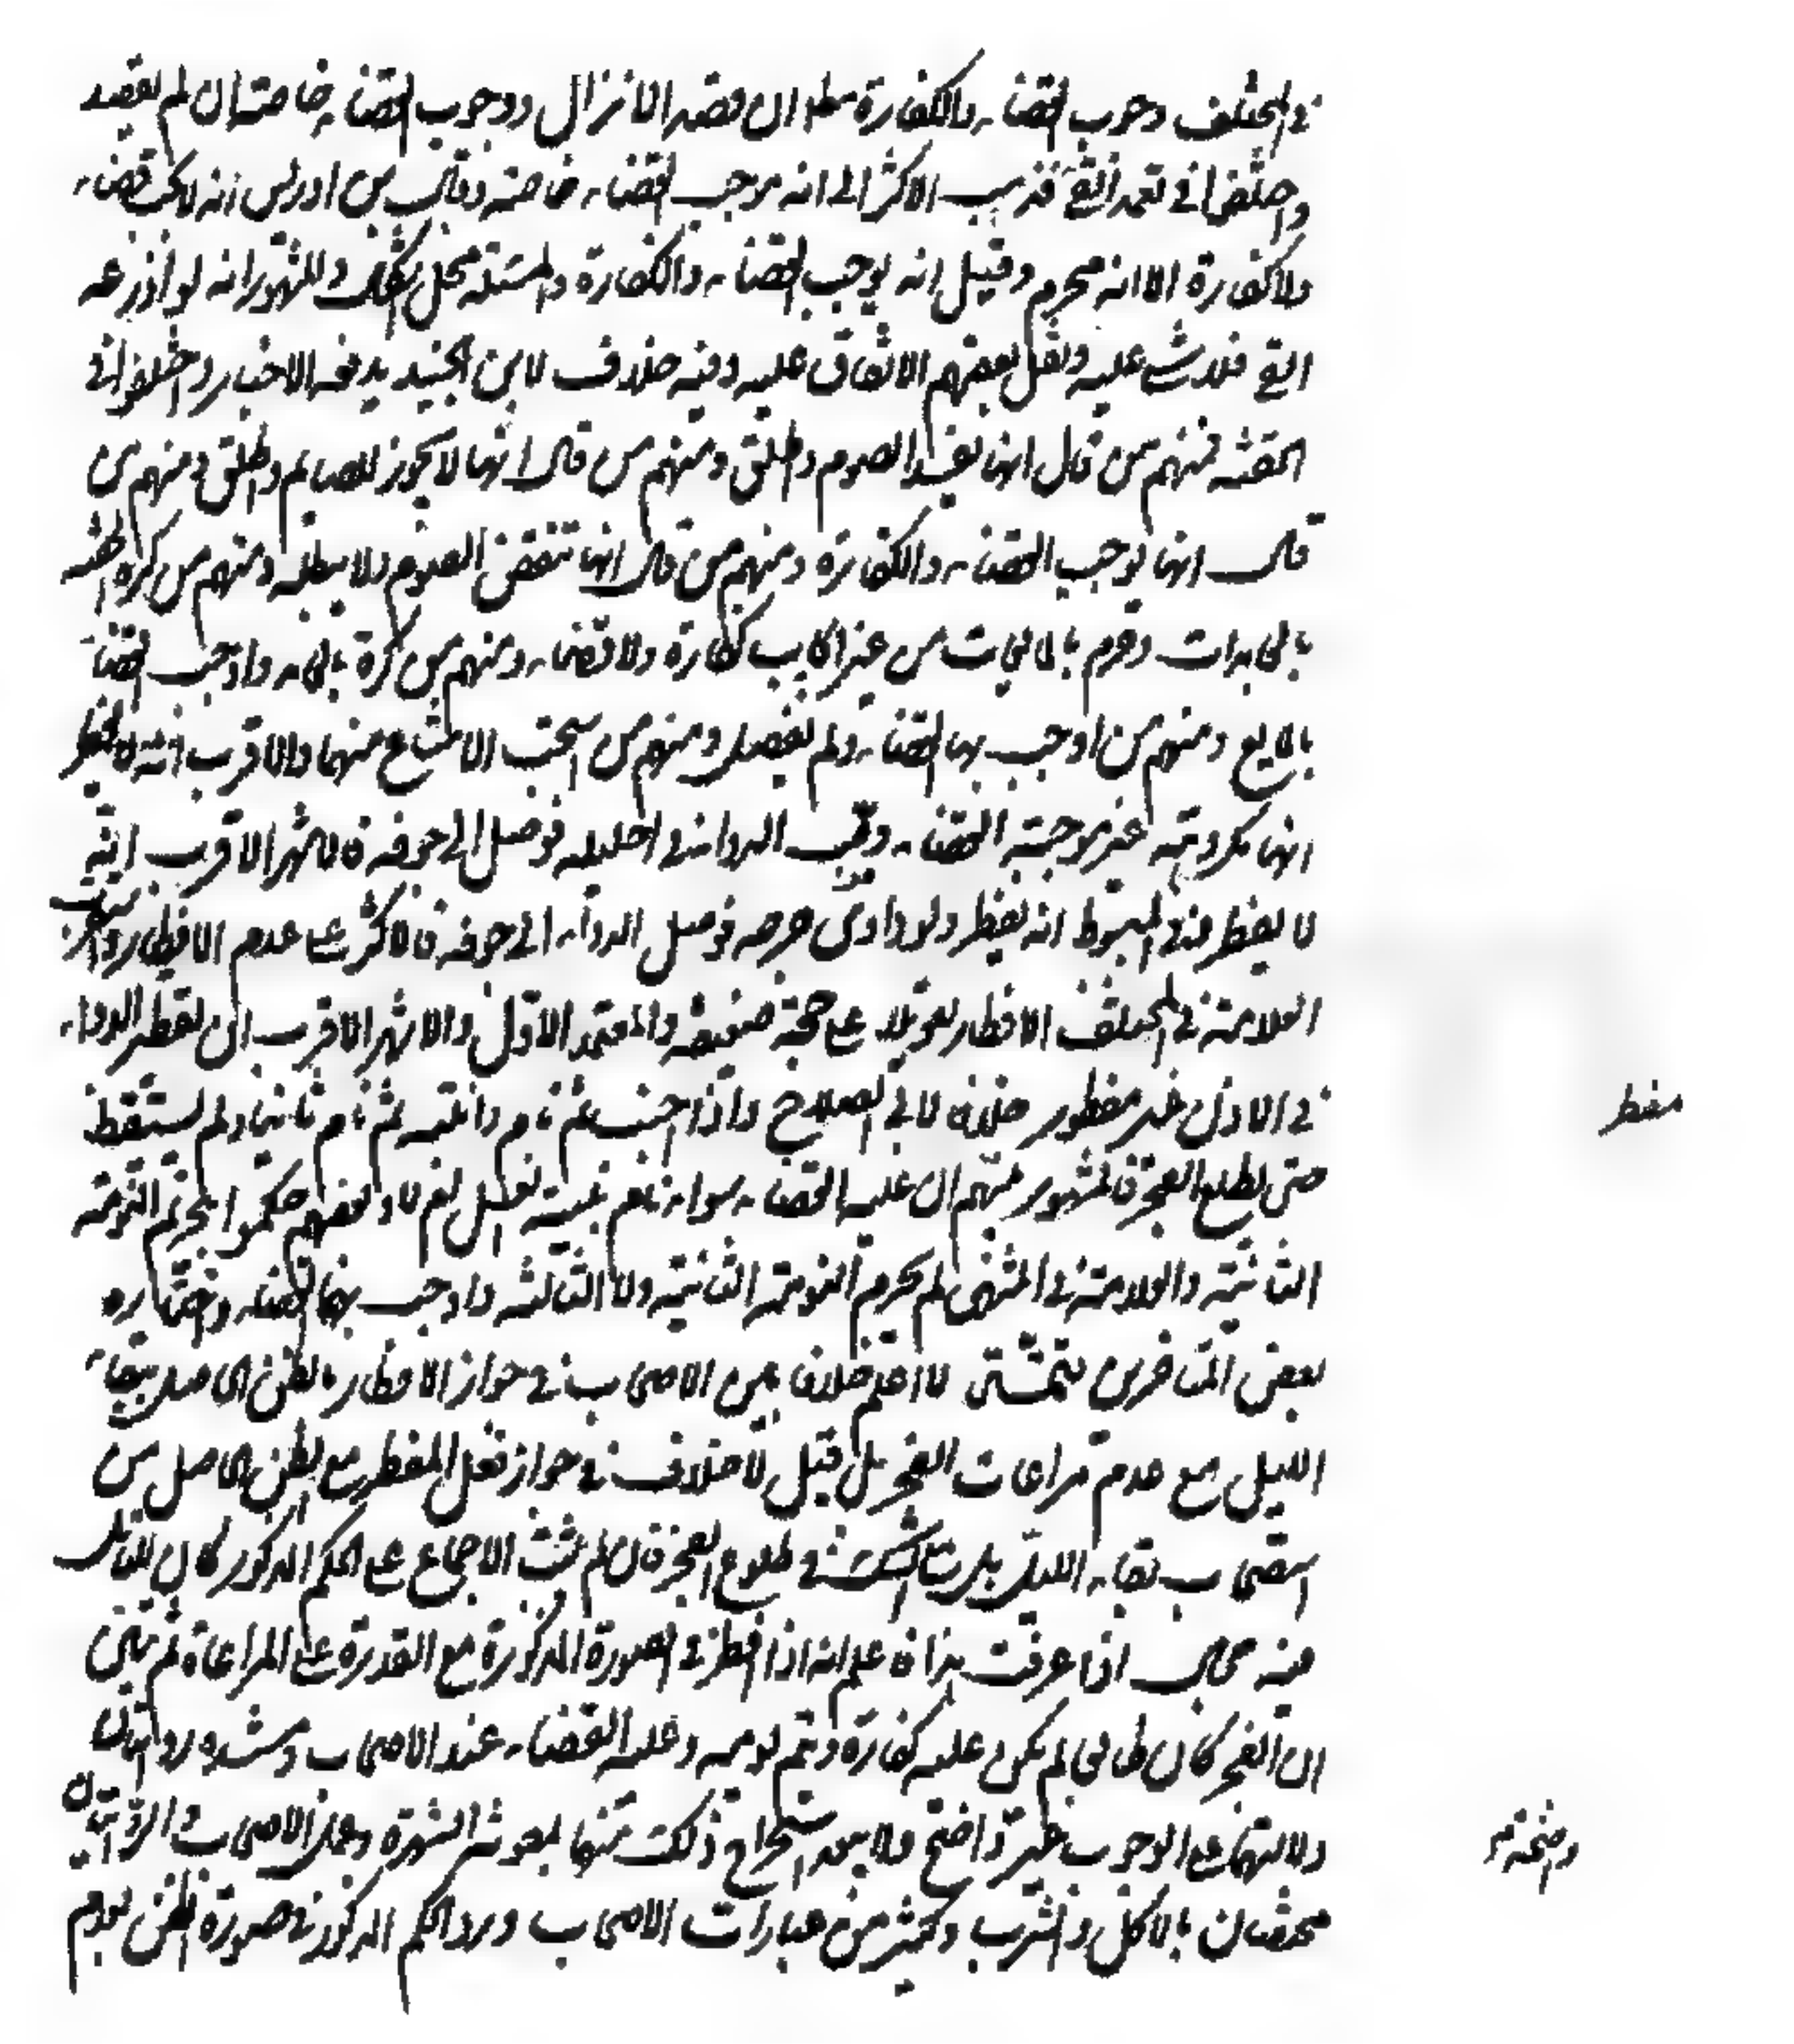 في المختلف وجوب القضاء والكفارة مطلقا ان قصد الانزال ووجوب القضاء خاصة ان لم يقصد
واختلفوا في تعمد القئ فذهب الاكثر الى انه موجب للقضاء خاصة وقال ابن ادريس انه لا يجب قضاء
ولا كفارة الا انه محرم وقيل انه يوجب القضاء والكفارة والمسئلة محل اشكال والمشهور انه لو اذرعه
القئ فلا شئ عليه ونقل بعضهم الاتفاق عليه وفيه خلاف لابن الجنيد يدفعه الاخبار واختلفوا في
الحقنة فمنهم من قال انها يفسد الصوم واطلق ومنهم من قال انها لا يجوز للصايم واطلق ومنهم من
قال انها توجب القضاء والكفارة ومنهم من قال انها تنقض الصوم ولا يبطله ومنهم من كره الحقنة
بالجامدات وحرم بالمايعات من غير ايجاب كفارة ولا قضاء ومنهم من كره بالجامد واوجب القضاء
بالمايع ومنهم من اوجب بها القضاء ولم يفصل ومنهم من استحب الامتناع منهما والاقرب انه لا يفطر
انها مكروهة غير موجبة القضاء وصب الدواء في احليله فوصل الى جوفه فالاشهر الاقرب انه
لا يفطر وفي المبسوط انه يفطر ولو داوى جرحه فوصل الدواء الى جوفه فالاكثر على عدم الافطار واستقرب
العلامة في المختلف الافطار تعويلا على حجة ضعيفة والمعتمد الاول والاشهر الاقرب ان تقطير الدواء
في الاذن غير مفطور خلافا لابي الصلاح واذا اجنب ثم نام وانتبه ثم نام ثانيا ولم يستيقظ
حتى يطلع الفجر فالمشهور بينهم ان عليه القضاء سواء نام بنية الغسل ام لا وبعضهم حكموا بتحريم النومة
الثانية والعلامة في المنتهى لم يحرم النومة الثانية ولا الثالثة واوجب بها القضاء واختاره
بعض المتاخرين تتمة لا اعلم خلافا بين الاصحاب في جواز الافطار بالظن الحاصل ببقاء
الليل مع عدم مراعات الفجر بل قيل لا خلاف في جواز فعل المفطر مع الظن الحاصل من
استصحاب بقاء الليل بل مع الشك في طلوع الفجر فان لم يثبت الاجماع على الحكم المذكور كان للتامل
فيه مجال اذا عرفت هذا فاعلم انه اذا افطر في الصورة المذكورة مع القدرة على المراعاة ثم تبين
ان الفجر كان طالعا لم يكن عليه كفارة ويتم يومه وعليه القضاء عند الاصحاب ومستنده روايتان
دلالتهما على الوجوب غير واضح ولا يبعد استخراج ذلك منها بمعونة الشهرة وعمل الاصحاب والروايتان
مختصتان بالاكل والشرب وكثير من عبارات الاصحاب ورد الحكم المذكور في صورة الظن بعدم
مفطر
واضحة